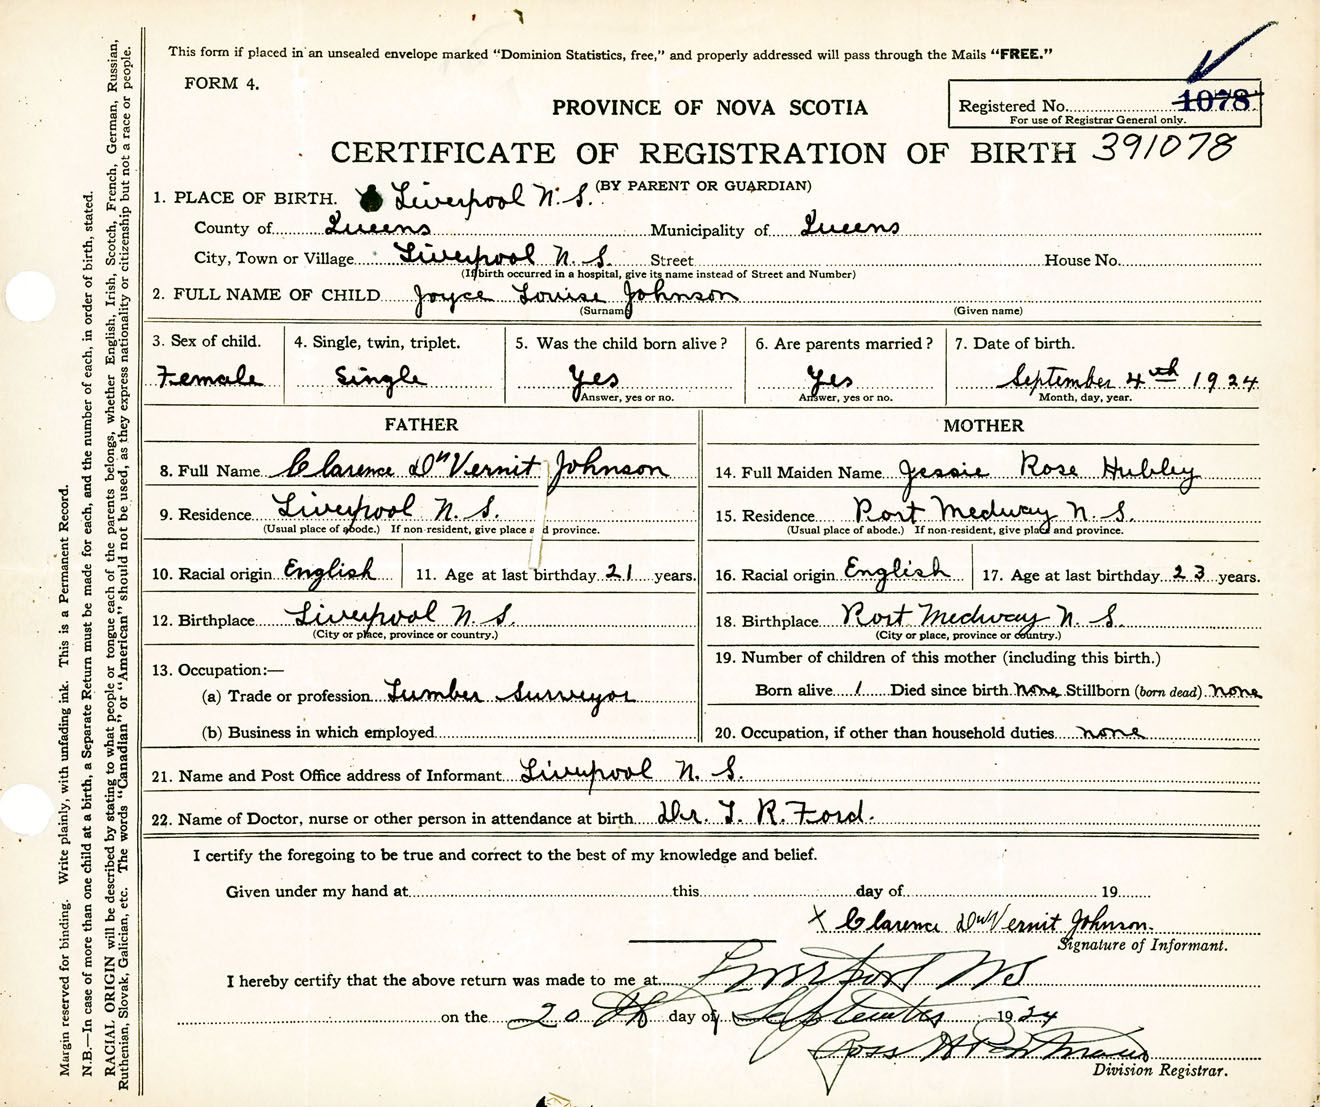 This form if placed in an unsealed envelope marked "Dominion Statistics, free," and properly addressed will pass through the Mails "FREE."
FORM 4.
PROVINCE OF NOVA SCOTIA
Registered No. 1078
For use of Registrar General only.
CERTIFICATE OF REGISTRATION OF BIRTH 391078
(BY PARENT OR GUARDIAN)
1. PLACE OF BIRTH. Liverpool N.S.
County of Queens Municipality of Queens
City, Town or Village Liverpool N.S. Street House No.
(If birth occurred in a hospital, give its name instead of Street and Number)
2. FULL NAME OF CHILD Joyce Louise Johnson
(Surname) (Given name)
3. Sex of child. 4. Single, twin, triplet. 5. Was the child born alive? 6. Are parents married? 7. Date of birth.
Female Single Yes Yes September 4th 1924
Answer, yes or no. Answer, yes or no. Month, day, year.
FATHER MOTHER
8. Full Name Clarence Vernit Johnson 14. Full Maiden Name Jessie Rose Hubley
9. Residence Liverpool N.S. 15. Residence Port Medway N.S.
(Usual place of abode.) If non-resident, give place and province. (Usual place of abode.) If non-resident, give place and province.
10. Racial origin English 11. Age at last birthday 21 years. 16. Racial origin English 17. Age at last birthday 23 years.
12. Birthplace Liverpool N.S. 18. Birthplace Port Medway N.S.
(City or place, province or country.) (City or place, province or country.)
13. Occupation:— 19. Number of children of this mother (including this birth.)
(a) Trade or profession Lumber Surveyor Born alive 1 Died since birth none Stillborn (born dead) none
(b) Business in which employed 20. Occupation, if other than household duties none
21. Name and Post Office address of Informant Liverpool N.S.
22. Name of Doctor, nurse or other person in attendance at birth Dr. R. Ford.
I certify the foregoing to be true and correct to the best of my knowledge and belief.
Given under my hand at this day of 19
X Clarence Vernit Johnson.
Signature of Informant.
I hereby certify that the above return was made to me at Liverpool NS
on the 20th day of September 1924
Ross
Division Registrar.
Margin reserved for binding. Write plainly, with unfading ink. This is a Permanent Record.
N.B.—In case of more than one child at a birth, a Separate Return must be made for each, and the number of each, in order of birth, stated.
RACIAL ORIGIN will be described by stating to what people or tongue each of the parents belongs, whether English, Irish, Scotch, French, German, Russian,
Ruthenian, Slovak, Galician, etc. The words "Canadian" or "American" should not be used, as they express nationality or citizenship but not a race or people.